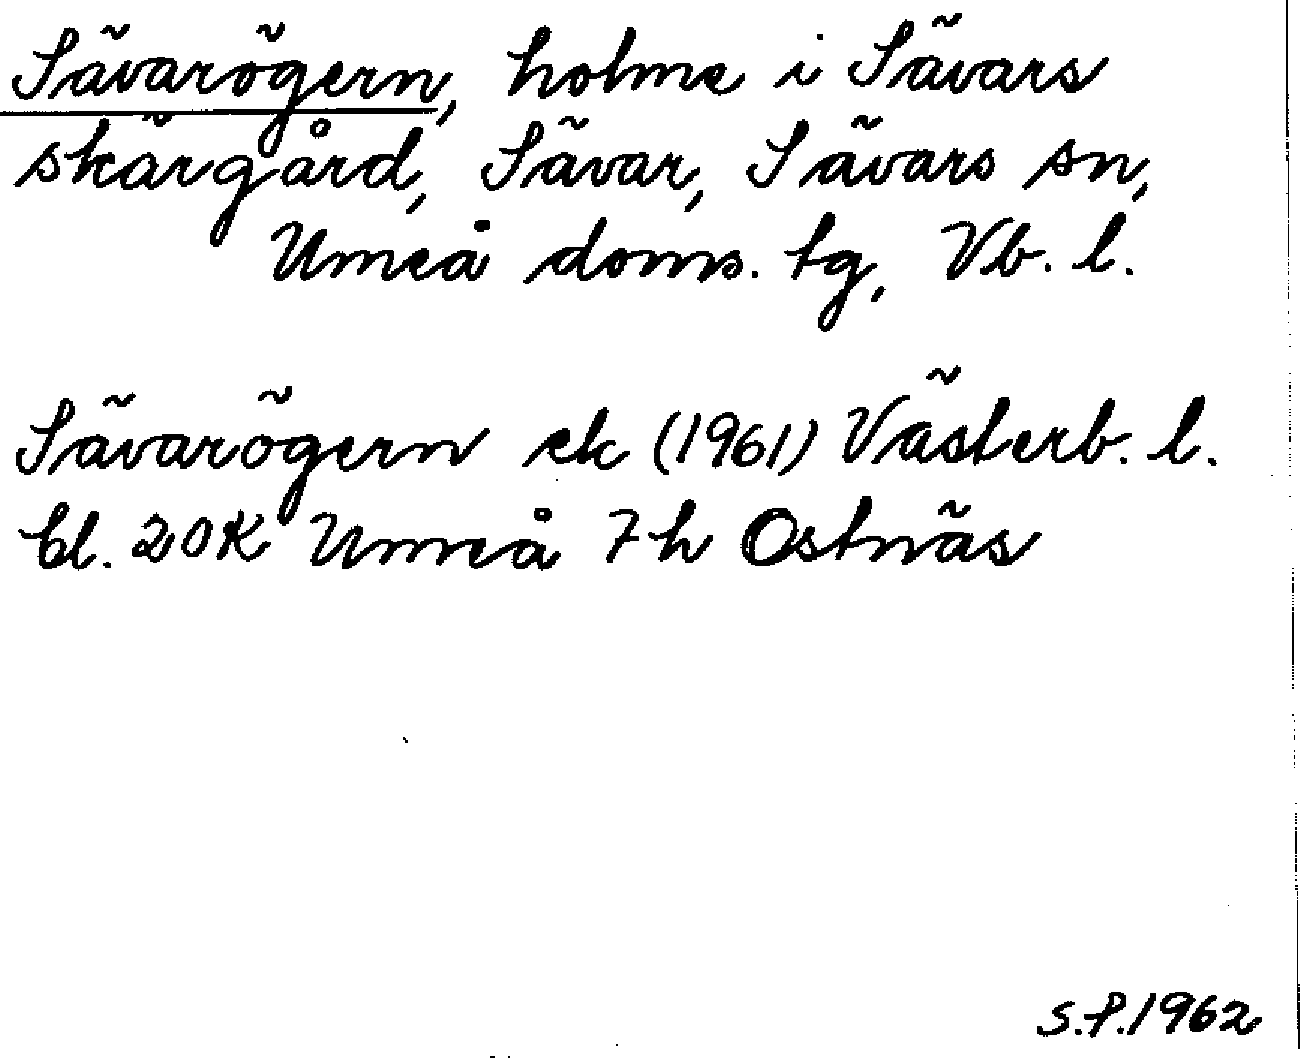 Sävarögern, holme i Sävars
skärgård, Sävar, Sävars sn,
Umeå doms. tg, Vb. l.
Sävarögern ek (1961) Västerb. l.
bl. 20K Umeå 7h Ostnäs
S.P.1962